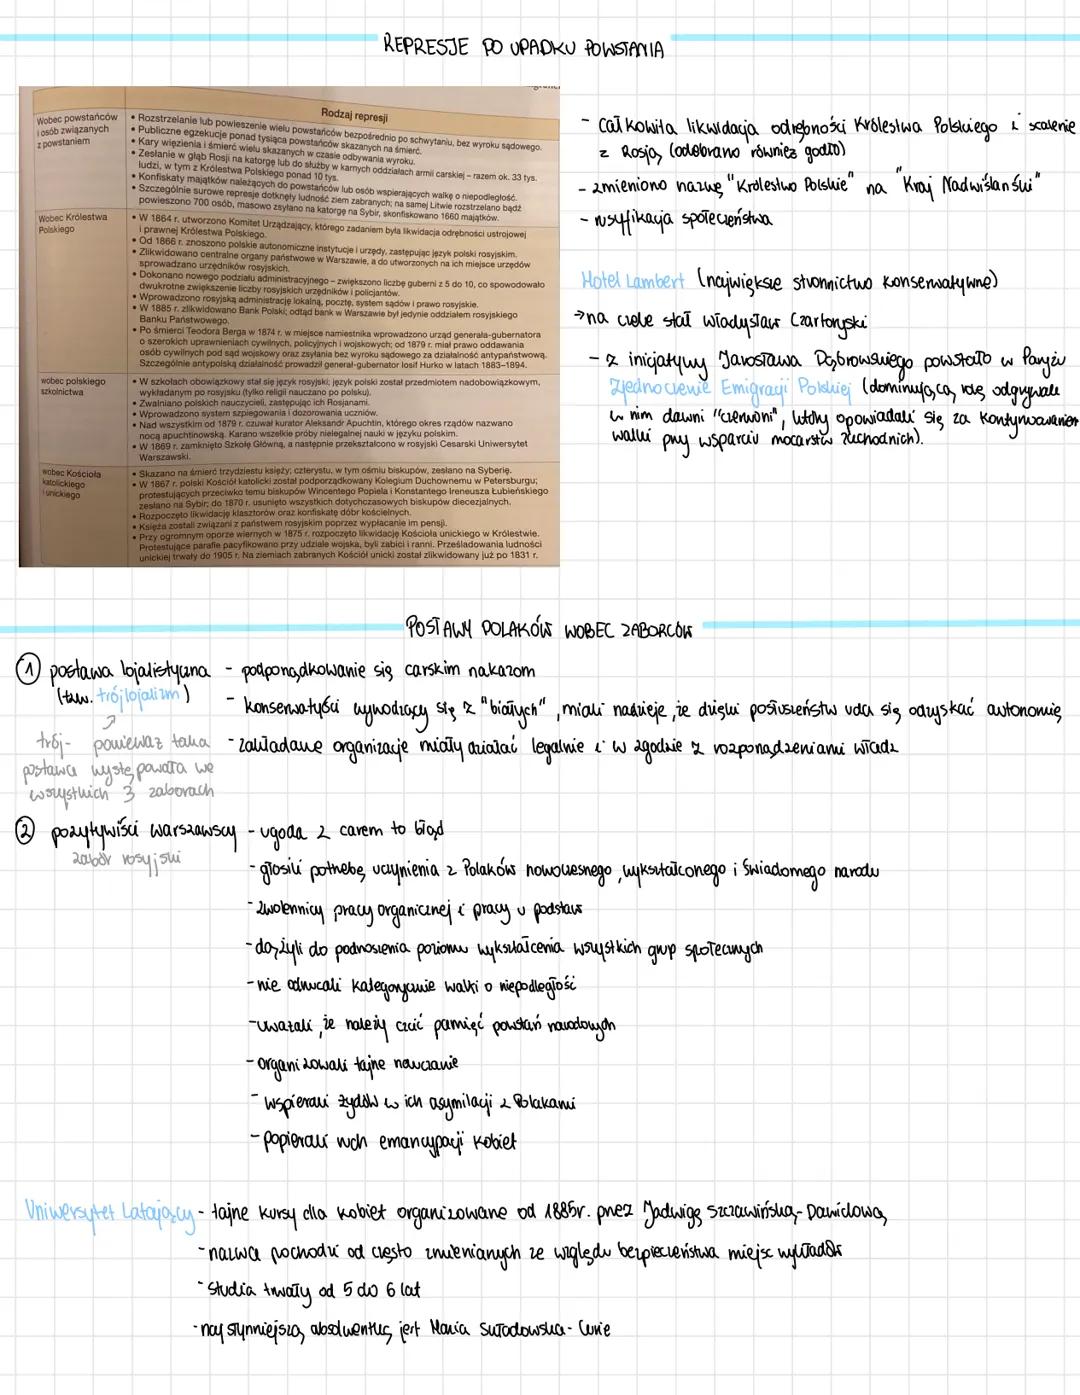 REPRESJE PO UPADKU POWSTANIA
Rodzaj represji
Wobec powstańców
i osób związanych
z powstaniem
• Rozstrzelanie lub powieszenie wielu powstańców bezpośrednio po schwytaniu, bez wyroku sądowego.
• Publiczne egzekucje ponad tysiąca powstańców skazanych na śmierć.
• Kary więzienia i śmierć wielu skazanych w czasie odbywania wyroku.
• Zesłanie w głąb Rosji na katorgę lub do służby w karnych oddziałach armii carskiej – razem ok. 33 tys.
ludzi, w tym z Królestwa Polskiego ponad 10 tys.
• Konfiskaty majątków należących do powstańców lub osób wspierających walkę o niepodległość.
• Szczególnie surowe represje dotknęły ludność ziem zabranych; na samej Litwie rozstrzelano bądź
powieszono 700 osób, masowo zsyłano na katorgę na Sybir, skonfiskowano 1660 majątków.
Wobec Królestwa
Polskiego
• W 1864 r. utworzono Komitet Urządzający, którego zadaniem była likwidacja odrębności ustrojowej
i prawnej Królestwa Polskiego.
• Od 1866 r. znoszono polskie autonomiczne instytucje i urzędy, zastępując język polski rosyjskim.
• Zlikwidowano centralne organy państwowe w Warszawie, a do utworzonych na ich miejsce urzędów
sprowadzano urzędników rosyjskich.
• Dokonano nowego podziału administracyjnego – zwiększono liczbę guberni z 5 do 10, co spowodowało
dwukrotne zwiększenie liczby rosyjskich urzędników i policjantów.
• Wprowadzono rosyjską administrację lokalną, pocztę, system sądów i prawo rosyjskie.
• W 1885 r. zlikwidowano Bank Polski; odtąd bank w Warszawie był jedynie oddziałem rosyjskiego
Banku Państwowego.
• Po śmierci Teodora Berga w 1874 r. w miejsce namiestnika wprowadzono urząd generała-gubernatora
o szerokich uprawnieniach cywilnych, policyjnych i wojskowych; od 1879 r. miał prawo oddawania
osób cywilnych pod sąd wojskowy oraz zsyłania bez wyroku sądowego za działalność antypaństwową.
Szczególnie antypolską działalność prowadził generał-gubernator Iosif Hurko w latach 1883–1894.
wobec polskiego
szkolnictwa
• W szkołach obowiązkowy stał się język rosyjski; język polski został przedmiotem nadobowiązkowym,
wykładanym po rosyjsku (tylko religii nauczano po polsku).
• Zwalniano polskich nauczycieli, zastępując ich Rosjanami.
• Wprowadzono system szpiegowania i dozorowania uczniów.
• Nad wszystkim od 1879 r. czuwał kurator Aleksandr Apuchtin, którego okres rządów nazwano
nocą apuchtinowską. Karano wszelkie próby nielegalnej nauki w języku polskim.
• W 1869 r. zamknięto Szkołę Główną, a następnie przekształcono w rosyjski Cesarski Uniwersytet
Warszawski.
wobec Kościoła
katolickiego
i unickiego
• Skazano na śmierć trzydziestu księży; czterystu, w tym ośmiu biskupów, zesłano na Syberię.
• W 1867 r. polski Kościół katolicki został podporządkowany Kolegium Duchownemu w Petersburgu;
protestujących przeciwko temu biskupów Wincentego Popiela i Konstantego Ireneusza Łubieńskiego
zesłano na Sybir; do 1870 r. usunięto wszystkich dotychczasowych biskupów diecezjalnych.
• Rozpoczęto likwidację klasztorów oraz konfiskatę dóbr kościelnych.
• Księża zostali związani z państwem rosyjskim poprzez wypłacanie im pensji.
• Przy ogromnym oporze wiernych w 1875 r. rozpoczęto likwidację Kościoła unickiego w Królestwie.
Protestujące parafie pacyfikowano przy udziale wojska, byli zabici i ranni. Prześladowania ludności
unickiej trwały do 1905 r. Na ziemiach zabranych Kościół unicki został zlikwidowany już po 1831 r.
- całkowita likwidacja odrębności Królestwa Polskiego i scalenie
z Rosją (odebrano również godło)
- zmieniono nazwę "Królestwo Polskie" na "Kraj Nadwiślański"
- rusyfikacja społeczeństwa
Hotel Lambert (największe stronnictwo konserwatywne)
→ na czele stał Władysław Czartoryski
- z inicjatywy Jarosława Dąbrowskiego powstało w Paryżu
Zjednoczenie Emigracji Polskiej (dominującą rolę odgrywali
w nim dawni "czerwoni", którzy opowiadali się za kontynuowaniem
walki przy wsparciu mocarstw zachodnich).
POSTAWY POLAKÓW WOBEC ZABORCÓW
① postawa lojalistyczna - podporządkowanie się carskim nakazom
(tzw. trójlojalizm)
- konserwatyści wywodzący się z "białych", mieli nadzieje, że dzięki posłuszeństw uda się odzyskać autonomię
trój- ponieważ taka
postawa występowała we
wszystkich 3 zaborach
- zakładane organizacje miały działać legalnie i w zgodzie z rozporządzeniami władz
② pozytywiści warszawscy - ugoda z carem to błąd
zabór rosyjski
- głosili potrzebę uczynienia z Polaków nowoczesnego, wykształconego i świadomego narodu
- zwolennicy pracy organicznej i pracy u podstaw
- dążyli do podnoszenia poziomu wykształcenia wszystkich grup społecznych
- nie odrzucali kategorycznie walki o niepodległość
- uważali, że należy czcić pamięć powstań narodowych
- organizowali tajne nauczanie
- wspierali żydów w ich asymilacji z Polakami
- popierali ruch emancypacji kobiet
Uniwersytet Latający - tajne kursy dla kobiet organizowane od 1885r. przez Jadwigę Szczawińską-Dawidową
- nazwa pochodzi od często zmienianych ze względu bezpieczeństwa miejsc wykładów
- studia trwały od 5 do 6 lat
- najsłynniejszą absolwentką jest Maria Skłodowska-Curie